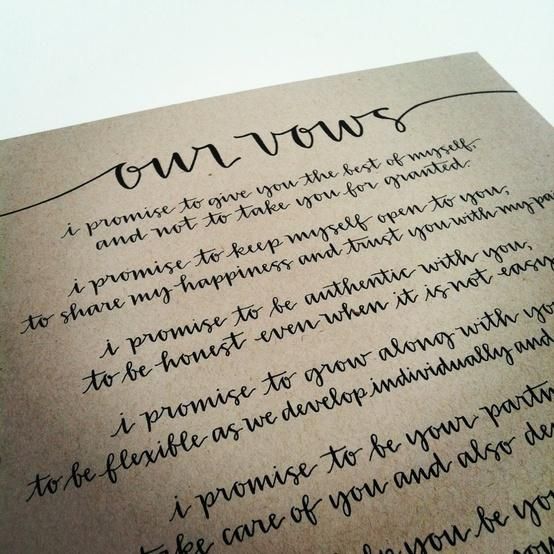 our vows
i promise to give you the best of myself,
and not to take you for granted.
i promise to keep myself open to you,
to share my happiness and trust you with my
i promise to be authentic with you,
to be honest even when it is not easy
i promise to grow along with
to be flexible as we develop individually and
i promise to be your
take care of you and also
you be